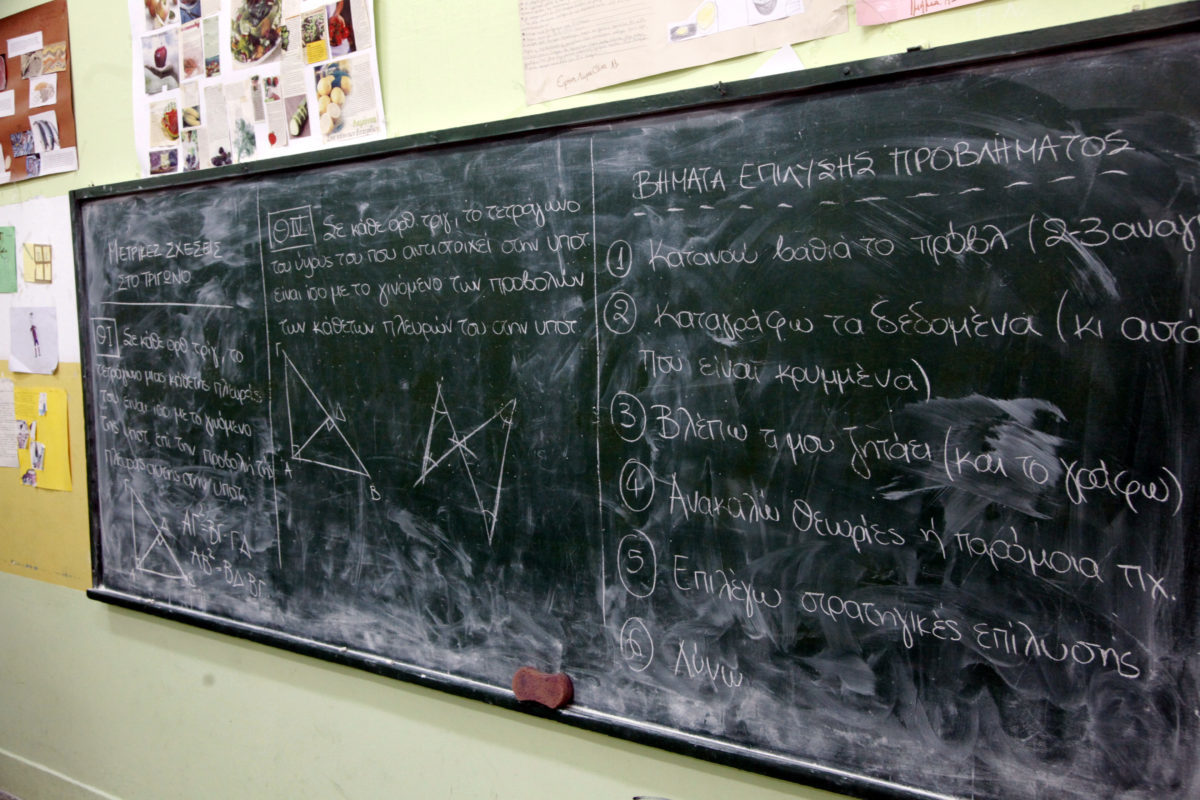 ΜΕΤΡΙΚΕΣ ΣΧΕΣΕΙΣ
ΣΤΟ ΤΡΙΓΩΝΟ
ΘΙ Σε κάθε ορθ. τριγ, το
τετράγωνο μιας κάθετης πλευράς
του είναι ίσο με το γινόμενο
της υποτ. επί την προβολή της
πλευράς αυτής στην υποτ.
ΑΓ²=ΒΓ·ΓΔ
ΑΒ²=ΒΔ·ΒΓ
ΘΙΙ Σε κάθε ορθ. τριγ, το τετράγωνο
του ύψους του που αντιστοιχεί στην υποτ.
είναι ίσο με το γινόμενο των προβολών
των κάθετων πλευρών του στην υποτ.
Γ
Δ
Α
Β
ΒΗΜΑΤΑ ΕΠΙΛΥΣΗΣ ΠΡΟΒΛΗΜΑΤΟΣ
1 Κατανοώ βαθιά το πρόβλ. (2-3 αναγ
2 Καταγράφω τα δεδομένα (κι αυτά
που είναι κρυμμένα)
3 Βλέπω τι μου ζητάει (και το γράφω)
4 Ανακαλώ θεωρίες ή παρόμοια πχ.
5 Επιλέγω στρατηγικές επίλυσης
6 Λύνω